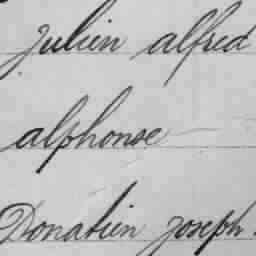 Julien alfred
alphonse
Donatien joseph.